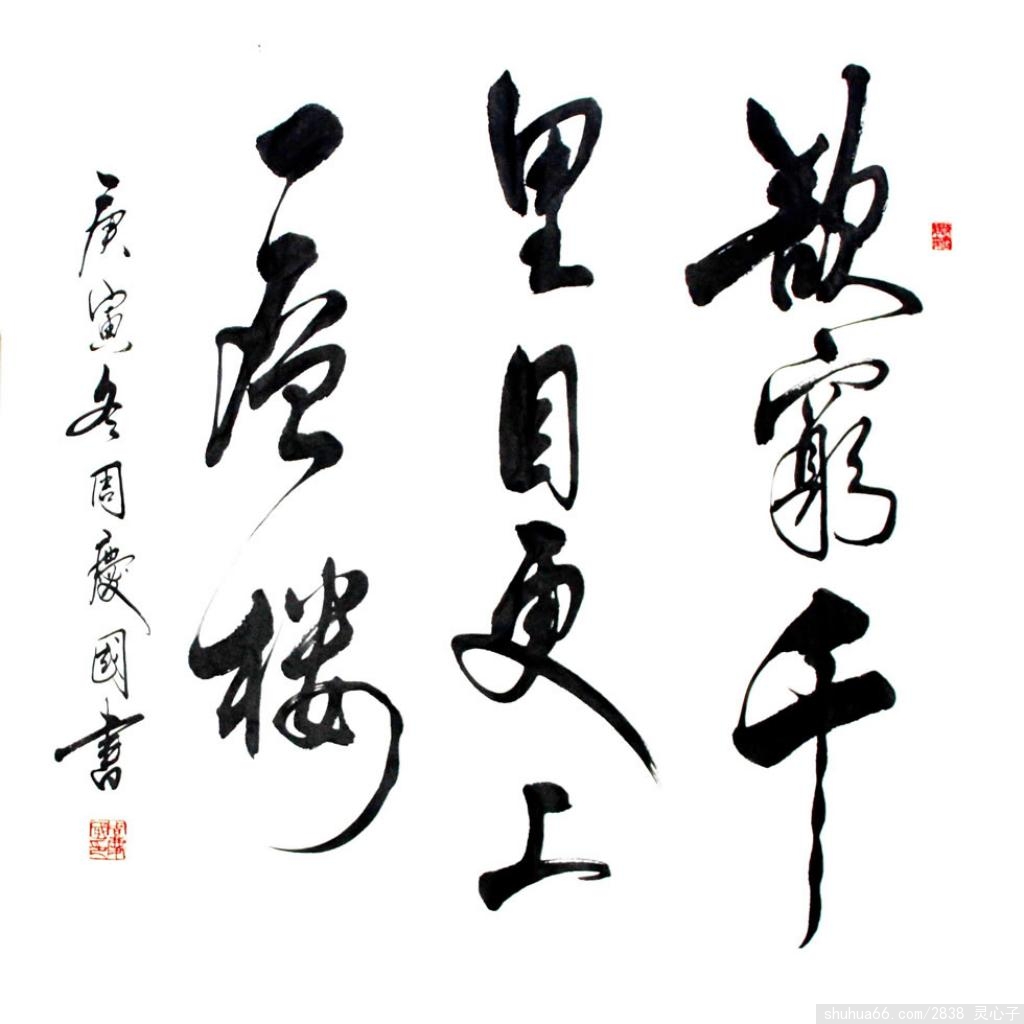 欲窮千
里目更上
一層楼
庚寅冬周慶國書
shuhua66.com/2838 灵心子